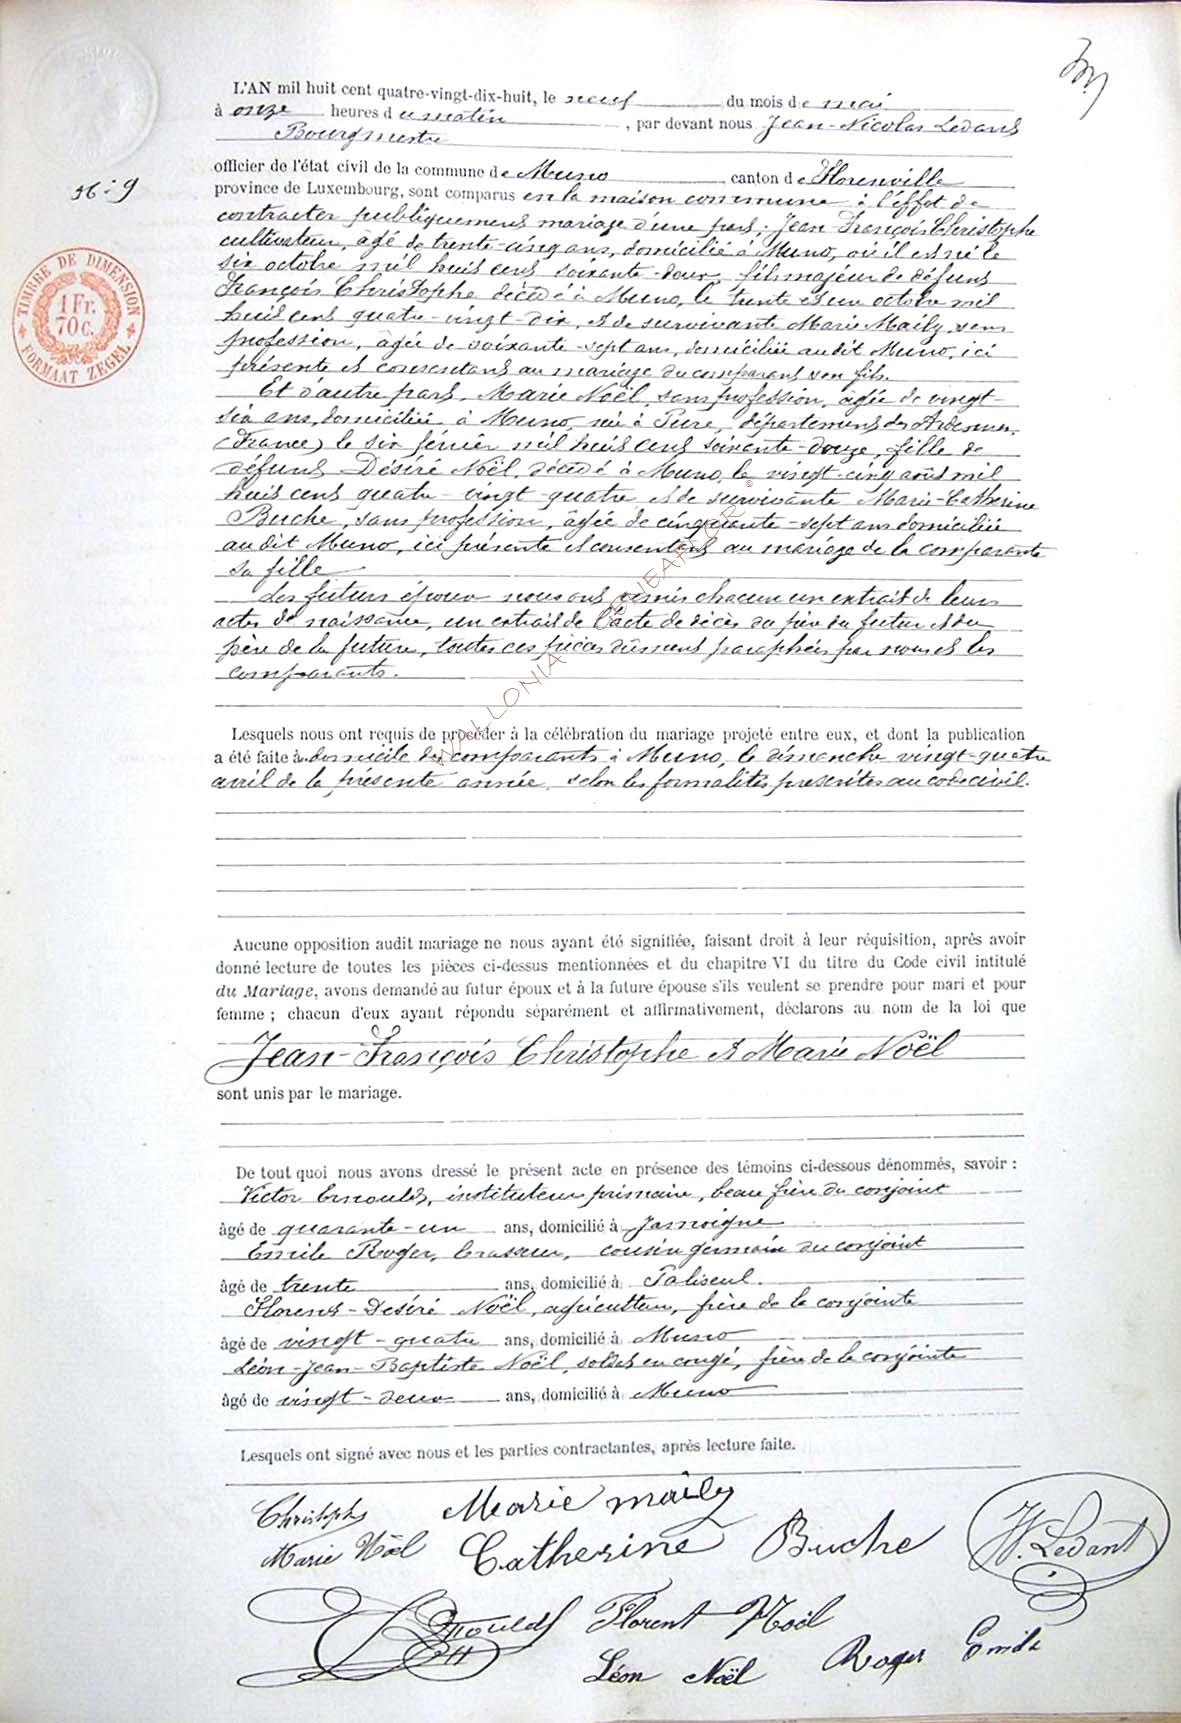 L'AN mil huit cent quatre-vingt-dix-huit, le neuf du mois de mai
à onze heures du matin, par devant nous Jean-Nicolas Ledant
Bourgmestre
officier de l'état civil de la commune de Muno canton de Florenville
N° 9
province de Luxembourg, sont comparus en la maison commune à l'effet de
contracter publiquement mariage d'une part, Jean François Christophe
cultivateur, âgé de trente-cinq ans, domicilié à Muno, où il est né le
six octobre mil huit cent soixante-deux, fils majeur de défunt
François Christophe décédé à Muno, le trente et un octobre mil
huit cent quatre-vingt-dix, et de survivante Marie Maily, sans
profession, âgée de soixante-sept ans, domiciliée au dit Muno, ici
présente et consentant au mariage du comparant son fils.
Et d'autre part, Marie Noël, sans profession, âgée de vingt-
six ans, domiciliée à Muno, née à Pure, département des Ardennes,
(France) le six février mil huit cent soixante-douze, fille de
défunt Désiré Noël, décédé à Muno, le vingt-cinq août mil
huit cent quatre-vingt-quatre et de survivante Marie-Catherine
Buche, sans profession, âgée de cinquante-sept ans domiciliée
au dit Muno, ici présente et consentant au mariage de la comparante
sa fille
Les futurs époux nous ont remis chacun un extrait de leurs
actes de naissance, un extrait de l'acte de décès du père du futur et du
père de la future, toutes ces pièces dûment paraphées par nous et les
comparants.
Lesquels nous ont requis de procéder à la célébration du mariage projeté entre eux, et dont la publication
a été faite à domicile des comparants à Muno, le dimanche vingt-quatre
avril de la présente année, selon les formalités prescrites au code civil.
Aucune opposition audit mariage ne nous ayant été signifiée, faisant droit à leur réquisition, après avoir
donné lecture de toutes les pièces ci-dessus mentionnées et du chapitre VI du titre du Code civil intitulé
du Mariage, avons demandé au futur époux et à la future épouse s'ils veulent se prendre pour mari et pour
femme ; chacun d'eux ayant répondu séparément et affirmativement, déclarons au nom de la loi que
Jean-François Christophe et Marie Noël
sont unis par le mariage.
De tout quoi nous avons dressé le présent acte en présence des témoins ci-dessous dénommés, savoir :
Victor Ernoulds, instituteur primaire, beau frère du conjoint
âgé de quarante-un ans, domicilié à Jamoigne
Emile Roger, brasseur, cousin germain du conjoint
âgé de trente ans, domicilié à Paliseul.
Florent-Désiré Noël, agriculteur, frère de la conjointe
âgé de vingt-quatre ans, domicilié à Muno
Léon-Jean-Baptiste Noël, soldat en congé, frère de la conjointe
âgé de vingt-deux ans, domicilié à Muno
Lesquels ont signé avec nous et les parties contractantes, après lecture faite.
Christophe Marie maily
Marie Noël Catherine Buche N. Ledant
Florent Noël
Léon Noël Roger Emile
TIMBRE DE DIMENSION
1 Fr.
70 c.
FORMAAT ZEGEL
WALLONIA GENEAFLOR ©